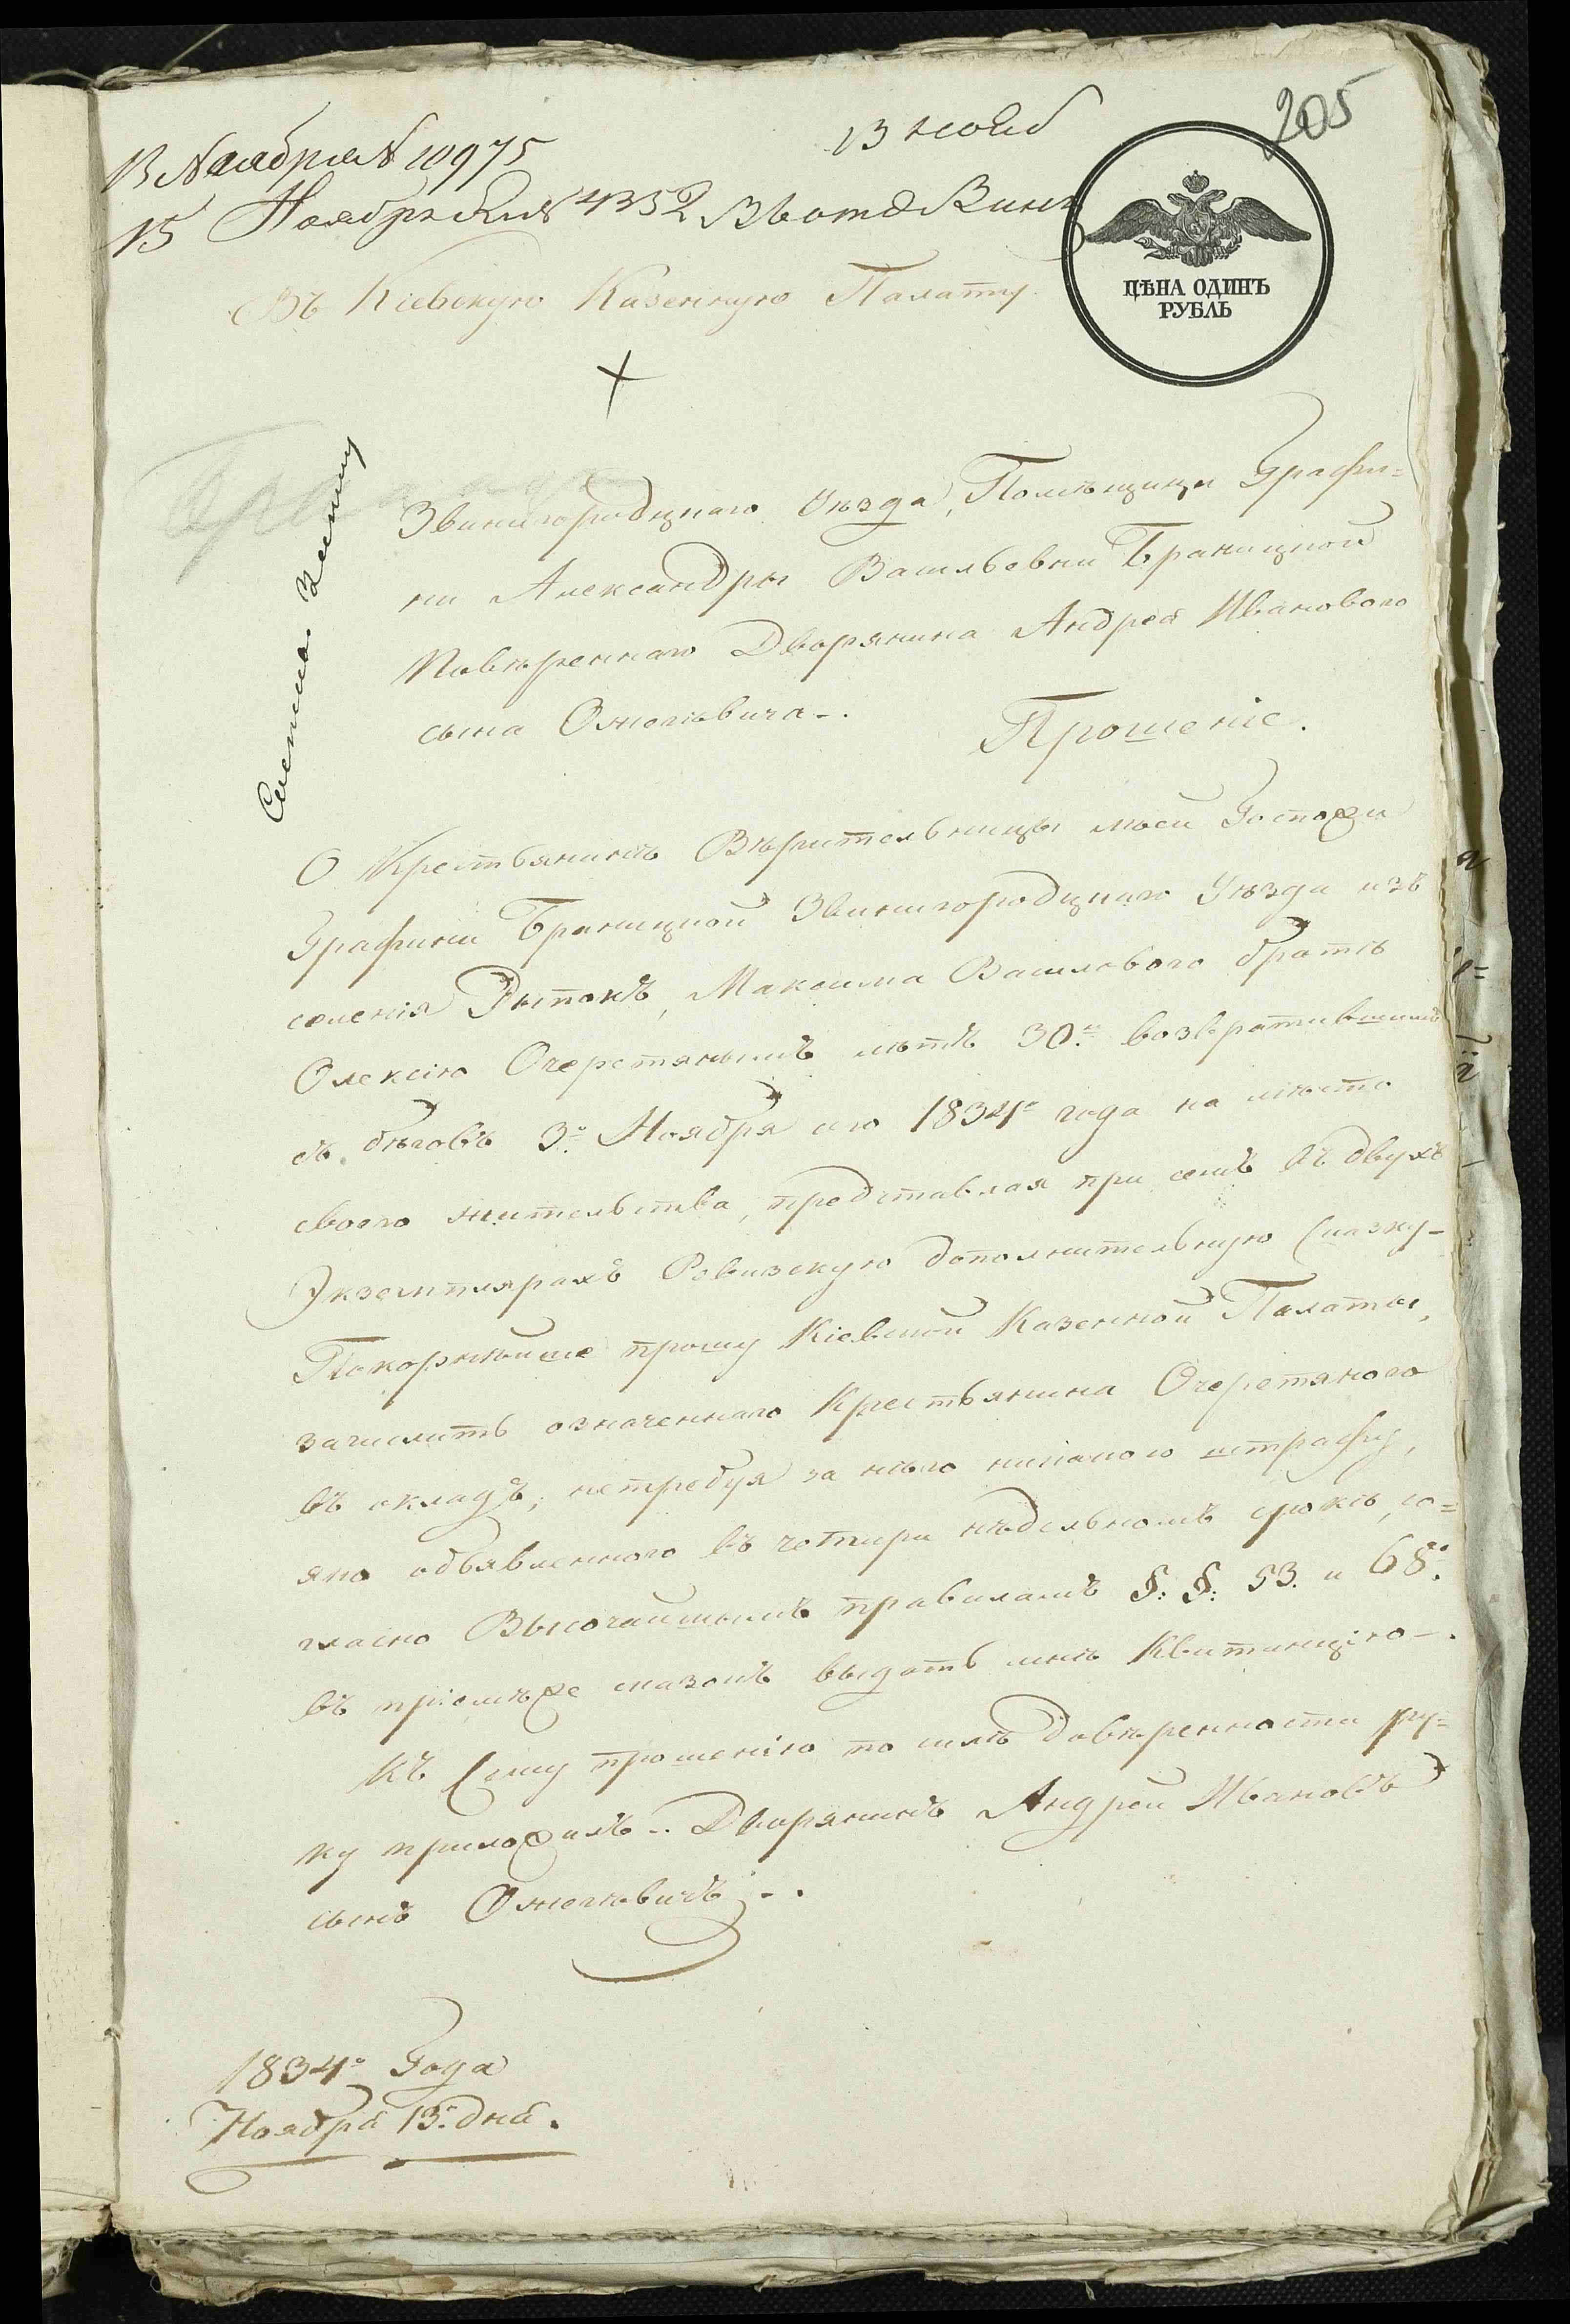 205
13 нояб
13 Ноября № 10975
15 Ноября № 4352
ЦѢНА ОДИНЪ
РУБЛЬ
Въ Кіевскую Казенную Палату.
Звинигородцкаго Уѣзда, Помѣщици Графи=
ни Александры Васильевни Браницкой
Повѣреннаго Дворянина Андрея Иванового
сына
Прошеніе.
О Крестьянинѣ Вѣрительницы моей Госпожи
Графини Браницкой Звинигородцкаго Уѣзда изъ
селенія Рыпокъ, Максима Василового братѣ
Олексію Очеретяныимъ лѣтъ 30.ти возвратившимъ
съ бѣговъ 3.о Ноября сего 1834.о года на мѣсто
своего жительства, представляя при семъ въ двухъ
Экземплярахъ Ревизскую дополнительную Сказку-
Покорнѣйше прошу Кіевской Казенной Палаты,
зачислить означеннаго Крестьянина Очеретяного
въ окладъ, нетребуя за нѣго никакого штрафу,
яко объявленного въ четыри нѣдельномъ срокѣ, со=
гласно Высочайшымъ правиламъ §: §: 53. и 68.
въ пріемѣже сказокъ выдать мнѣ Квитанцію-.
Къ Сему прошенію по силѣ довѣренности ру=
ку приложилъ.. Дворянинъ Андрей Ивановъ
сынъ
1834.о Года
Ноября 13. дня.